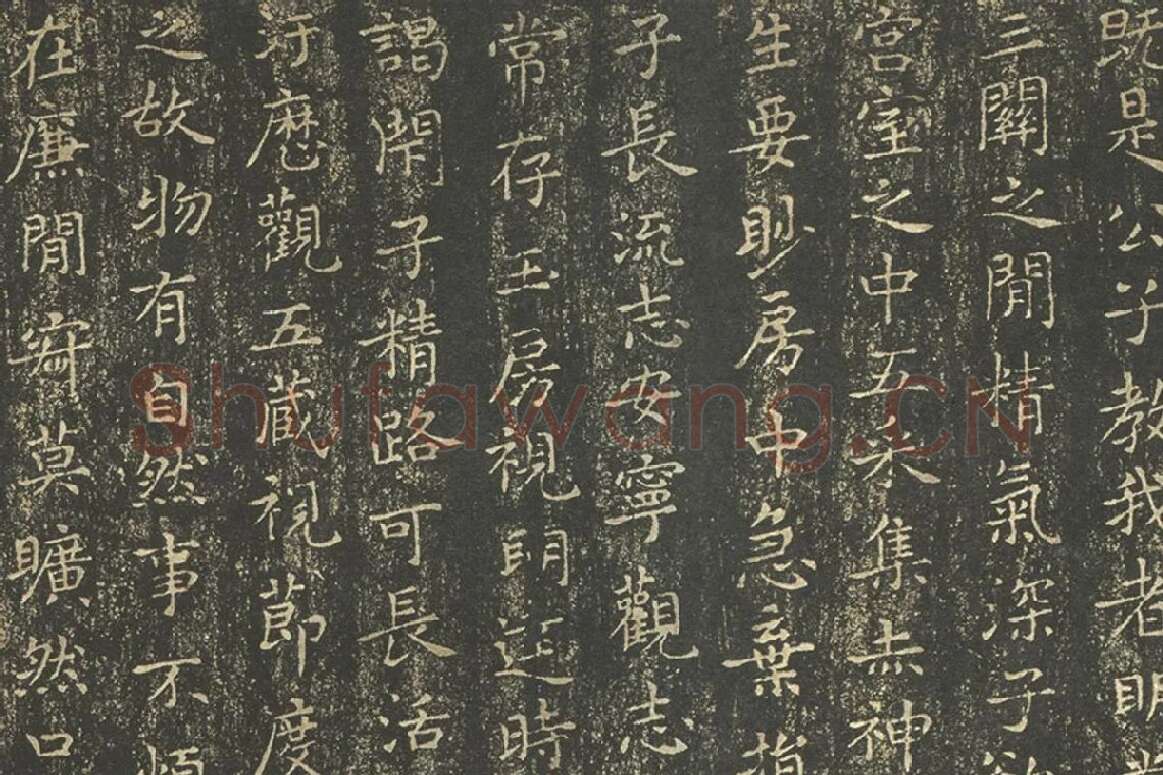 既是公子教我者明
三關之閒精氣深子
宮室之中五采集赤神
生要眇房中急棄捐
子長流志安寧觀志
常存玉房視明達時
謁閉子精路可長活
汙歷觀五藏視節度
之故物有自然事不煩
在廉閒寂莫曠然口
Shufawang.CN